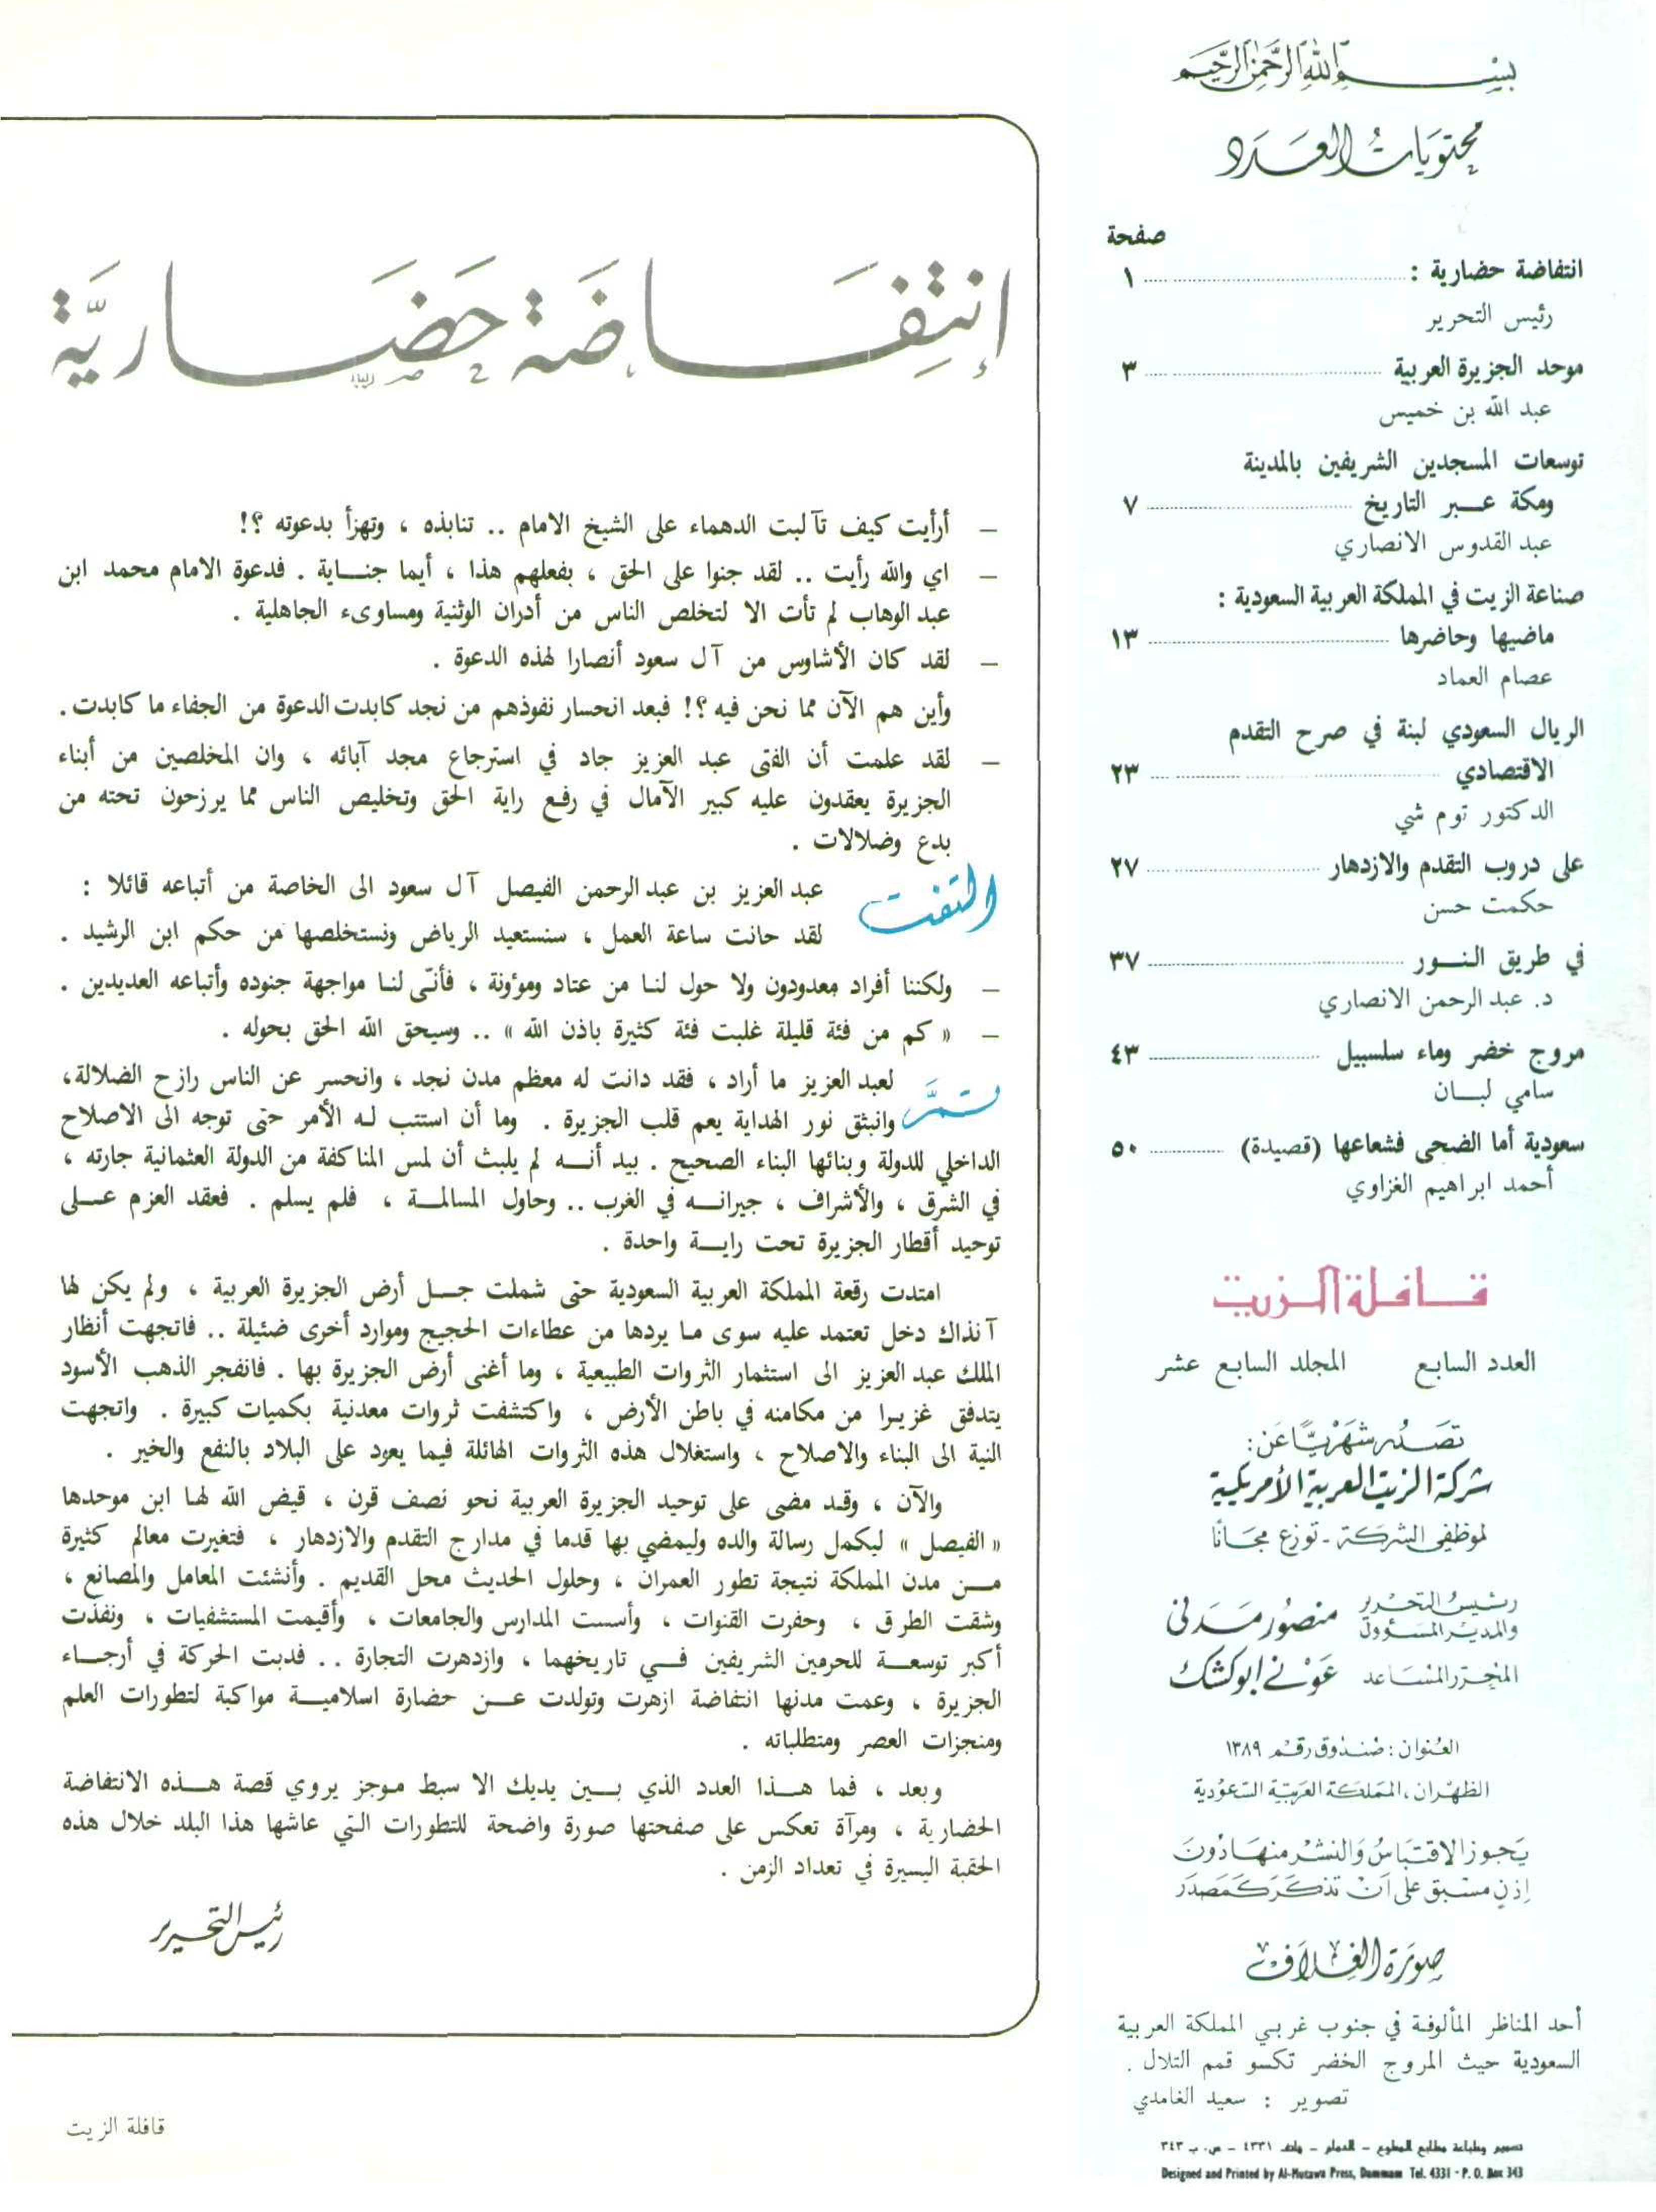 بسم الله الرحمن الرحيم
محتويات العدد
صفحة
انتفاضة حضارية : ........ ١
رئيس التحرير
موحد الجزيرة العربية ........ ٣
عبد الله بن خميس
توسعات المسجدين الشريفين بالمدينة
ومكة عبر التاريخ ........ ٧
عبد القدوس الانصاري
صناعة الزيت في المملكة العربية السعودية :
ماضيها وحاضرها ........ ١٣
عصام العماد
الريال السعودي لبنة في صرح التقدم
الاقتصادي ........ ٢٣
الدكتور توم شي
على دروب التقدم والازدهار ........ ٢٧
حكمت حسن
في طريق النور ........ ٣٧
د. عبد الرحمن الانصاري
مروج خضر وماء سلسبيل ........ ٤٣
سامي لبان
سعودية أما الضحى فشعاعها (قصيدة) ........ ٥٠
أحمد ابراهيم الغزاوي
قافلة الزيت
العدد السابع المجلد السابع عشر
تصدر شهريًّا عن:
شركة الزيت العربية الأمريكية
لموظفي الشركة - توزع مجانًا
رئيس التحرير والمدير المسؤول منصور مدني
المحرر المساعد عوني ابوكشك
العنوان : صندوق رقم ١٣٨٩
الظهران ، المملكة العربية السعودية
يجوز الاقتباس والنشر منها دون
إذن مسبق على أن تذكر كمصدر
صورة الغلاف
أحد المناظر المألوفة في جنوب غربي المملكة العربية
السعودية حيث المروج الخضر تكسو قمم التلال .
تصوير : سعيد الغامدي
تصميم وطباعة مطابع المطوع – الدمام – هاتف ٤٣٣١ – ص. ب ٣٤٣
Designed and Printed by Al-Mutawa Press, Dammam Tel. 4331 - P. O. Box 343
إنتفاضة حضارية
– أرأيت كيف تآلبت الدهماء على الشيخ الامام .. تنابذه ، وتهزأ بدعوته ؟!
– اي والله رأيت .. لقد جنوا على الحق ، بفعلهم هذا ، أيما جناية . فدعوة الامام محمد ابن
عبد الوهاب لم تأت الا لتخلص الناس من أدران الوثنية ومساوىء الجاهلية .
– لقد كان الأشاوس من آل سعود أنصارا لهذه الدعوة .
وأين هم الآن مما نحن فيه ؟! فبعد انحسار نفوذهم من نجد كابدت الدعوة من الجفاء ما كابدت .
– لقد علمت أن الفتى عبد العزيز جاد في استرجاع مجد آبائه ، وان المخلصين من أبناء
الجزيرة يعقدون عليه كبير الآمال في رفع راية الحق وتخليص الناس مما يرزحون تحته من
بدع وضلالات .
التفت عبد العزيز بن عبد الرحمن الفيصل آل سعود الى الخاصة من أتباعه قائلا :
لقد حانت ساعة العمل ، سنستعيد الرياض ونستخلصها من حكم ابن الرشيد .
– ولكننا أفراد معدودون ولا حول لنا من عتاد ومؤونة ، فأنّى لنا مواجهة جنوده وأتباعه العديدين .
– « كم من فئة قليلة غلبت فئة كثيرة باذن الله » .. وسيحق الله الحق بحوله .
تمَّ لعبد العزيز ما أراد ، فقد دانت له معظم مدن نجد ، وانحسر عن الناس رازح الضلالة،
وانبثق نور الهداية يعم قلب الجزيرة . وما أن استتب له الأمر حتى توجه الى الاصلاح
الداخلي للدولة وبنائها البناء الصحيح . بيد أنه لم يلبث أن لمس المناكفة من الدولة العثمانية جارته ،
في الشرق ، والأشراف ، جيرانه في الغرب .. وحاول المسالمة ، فلم يسلم . فعقد العزم على
توحيد أقطار الجزيرة تحت راية واحدة .
امتدت رقعة المملكة العربية السعودية حتى شملت جل أرض الجزيرة العربية ، ولم يكن لها
آنذاك دخل تعتمد عليه سوى ما يردها من عطاءات الحجيج وموارد أخرى ضئيلة .. فاتجهت أنظار
الملك عبد العزيز الى استثمار الثروات الطبيعية ، وما أغنى أرض الجزيرة بها . فانفجر الذهب الأسود
يتدفق غزيرا من مكامنه في باطن الأرض ، واكتشفت ثروات معدنية بكميات كبيرة . واتجهت
النية الى البناء والاصلاح ، واستغلال هذه الثروات الهائلة فيما يعود على البلاد بالنفع والخير .
والآن ، وقد مضى على توحيد الجزيرة العربية نحو نصف قرن ، قيض الله لها ابن موحدها
« الفيصل » ليكمل رسالة والده وليمضي بها قدما في مدارج التقدم والازدهار ، فتغيرت معالم كثيرة
من مدن المملكة نتيجة تطور العمران ، وحلول الحديث محل القديم . وأنشئت المعامل والمصانع ،
وشقت الطرق ، وحفرت القنوات ، وأسست المدارس والجامعات ، وأقيمت المستشفيات ، ونفذت
أكبر توسعة للحرمين الشريفين في تاريخهما ، وازدهرت التجارة .. فدبت الحركة في أرجاء
الجزيرة ، وعمت مدنها انتفاضة ازهرت وتولدت عن حضارة اسلامية مواكبة لتطورات العلم
ومنجزات العصر ومتطلباته .
وبعد ، فما هذا العدد الذي بين يديك الا سبط موجز يروي قصة هذه الانتفاضة
الحضارية ، ومرآة تعكس على صفحتها صورة واضحة للتطورات التي عاشها هذا البلد خلال هذه
الحقبة اليسيرة في تعداد الزمن .
رئيس التحرير
قافلة الزيت